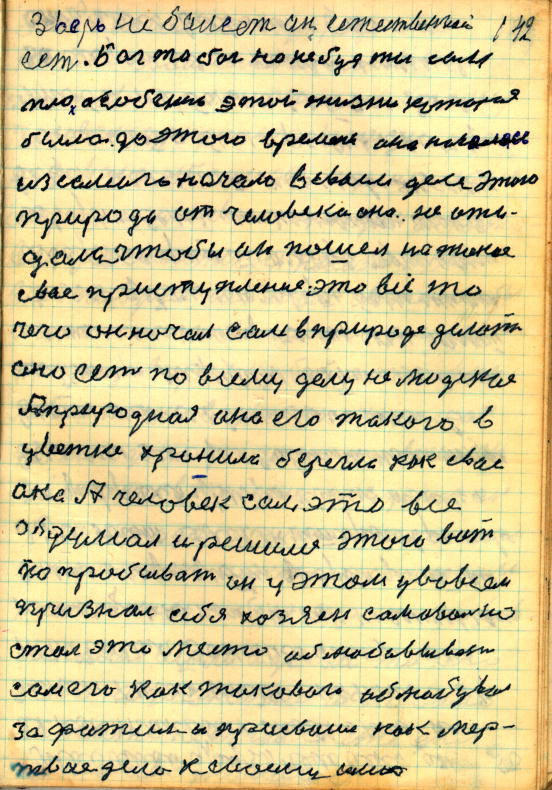 зверь не болеет он естественный 142
сет. Бог то бог но не будь ты сам
плох особенно этой жизни которая
была до этого времени она
из самого начало в своем деле этого
природа от человека она не ожи-
дала чтобы он пошел на такое
свае приступление это всё то
чего он начал сам в природе делать
оно сет по всему делу не людское
А природная она его такого в
цветке хранила берегла как свае
ока А человек сам это все
адумал и решился этого вот
то пробыват он у этом увовсем
признал себя хозяен самовольно
стал это место
самого как такового
зафатил и присвоил как мер-
твае дело к своему